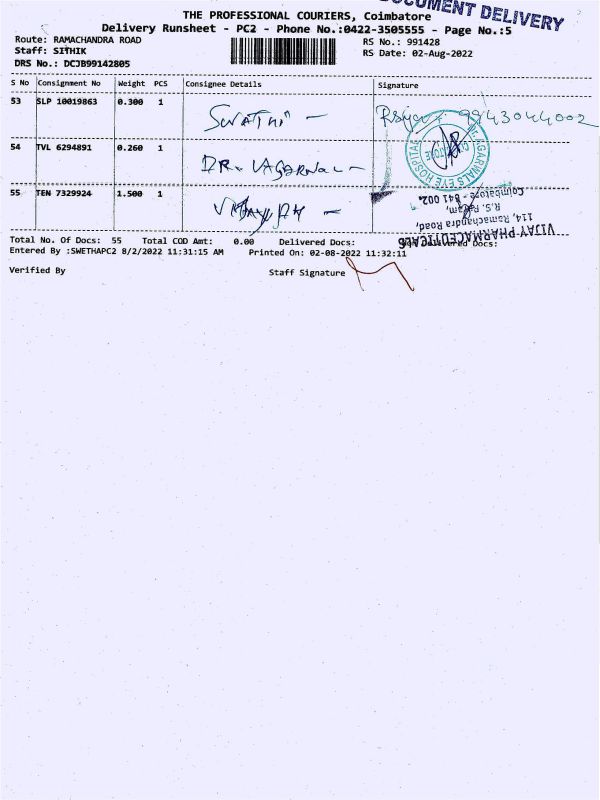 DOCUMENT DELIVERY
THE PROFESSIONAL COURIERS, Coimbatore
Delivery Runsheet - PC2 - Phone No.:0422-3505555 - Page No.:5
Route: RAMACHANDRA ROAD
RS No.: 991428
Staff: SITHIK
RS Date: 02-Aug-2022
DRS No.: DCJB99142805
S No Consignment No Weight PCS Consignee Details Signature
53 SLP 10019863 0.300 1 Swathi 9943044002
54 TVL 6294891 0.260 1 DR. Agarwal
AGARWALS EYE HOSPITAL
55 TEN 7329924 1.500 1
VIJAY PHARMACEUTICALS
114, Ramachandra Road,
R.S. Puram,
Coimbatore - 641 002.
Total No. Of Docs: 55 Total COD Amt: 0.00 Delivered Docs: Delivered Docs:
Entered By :SWETHAPC2 8/2/2022 11:31:15 AM Printed On: 02-08-2022 11:32:11
Verified By Staff Signature